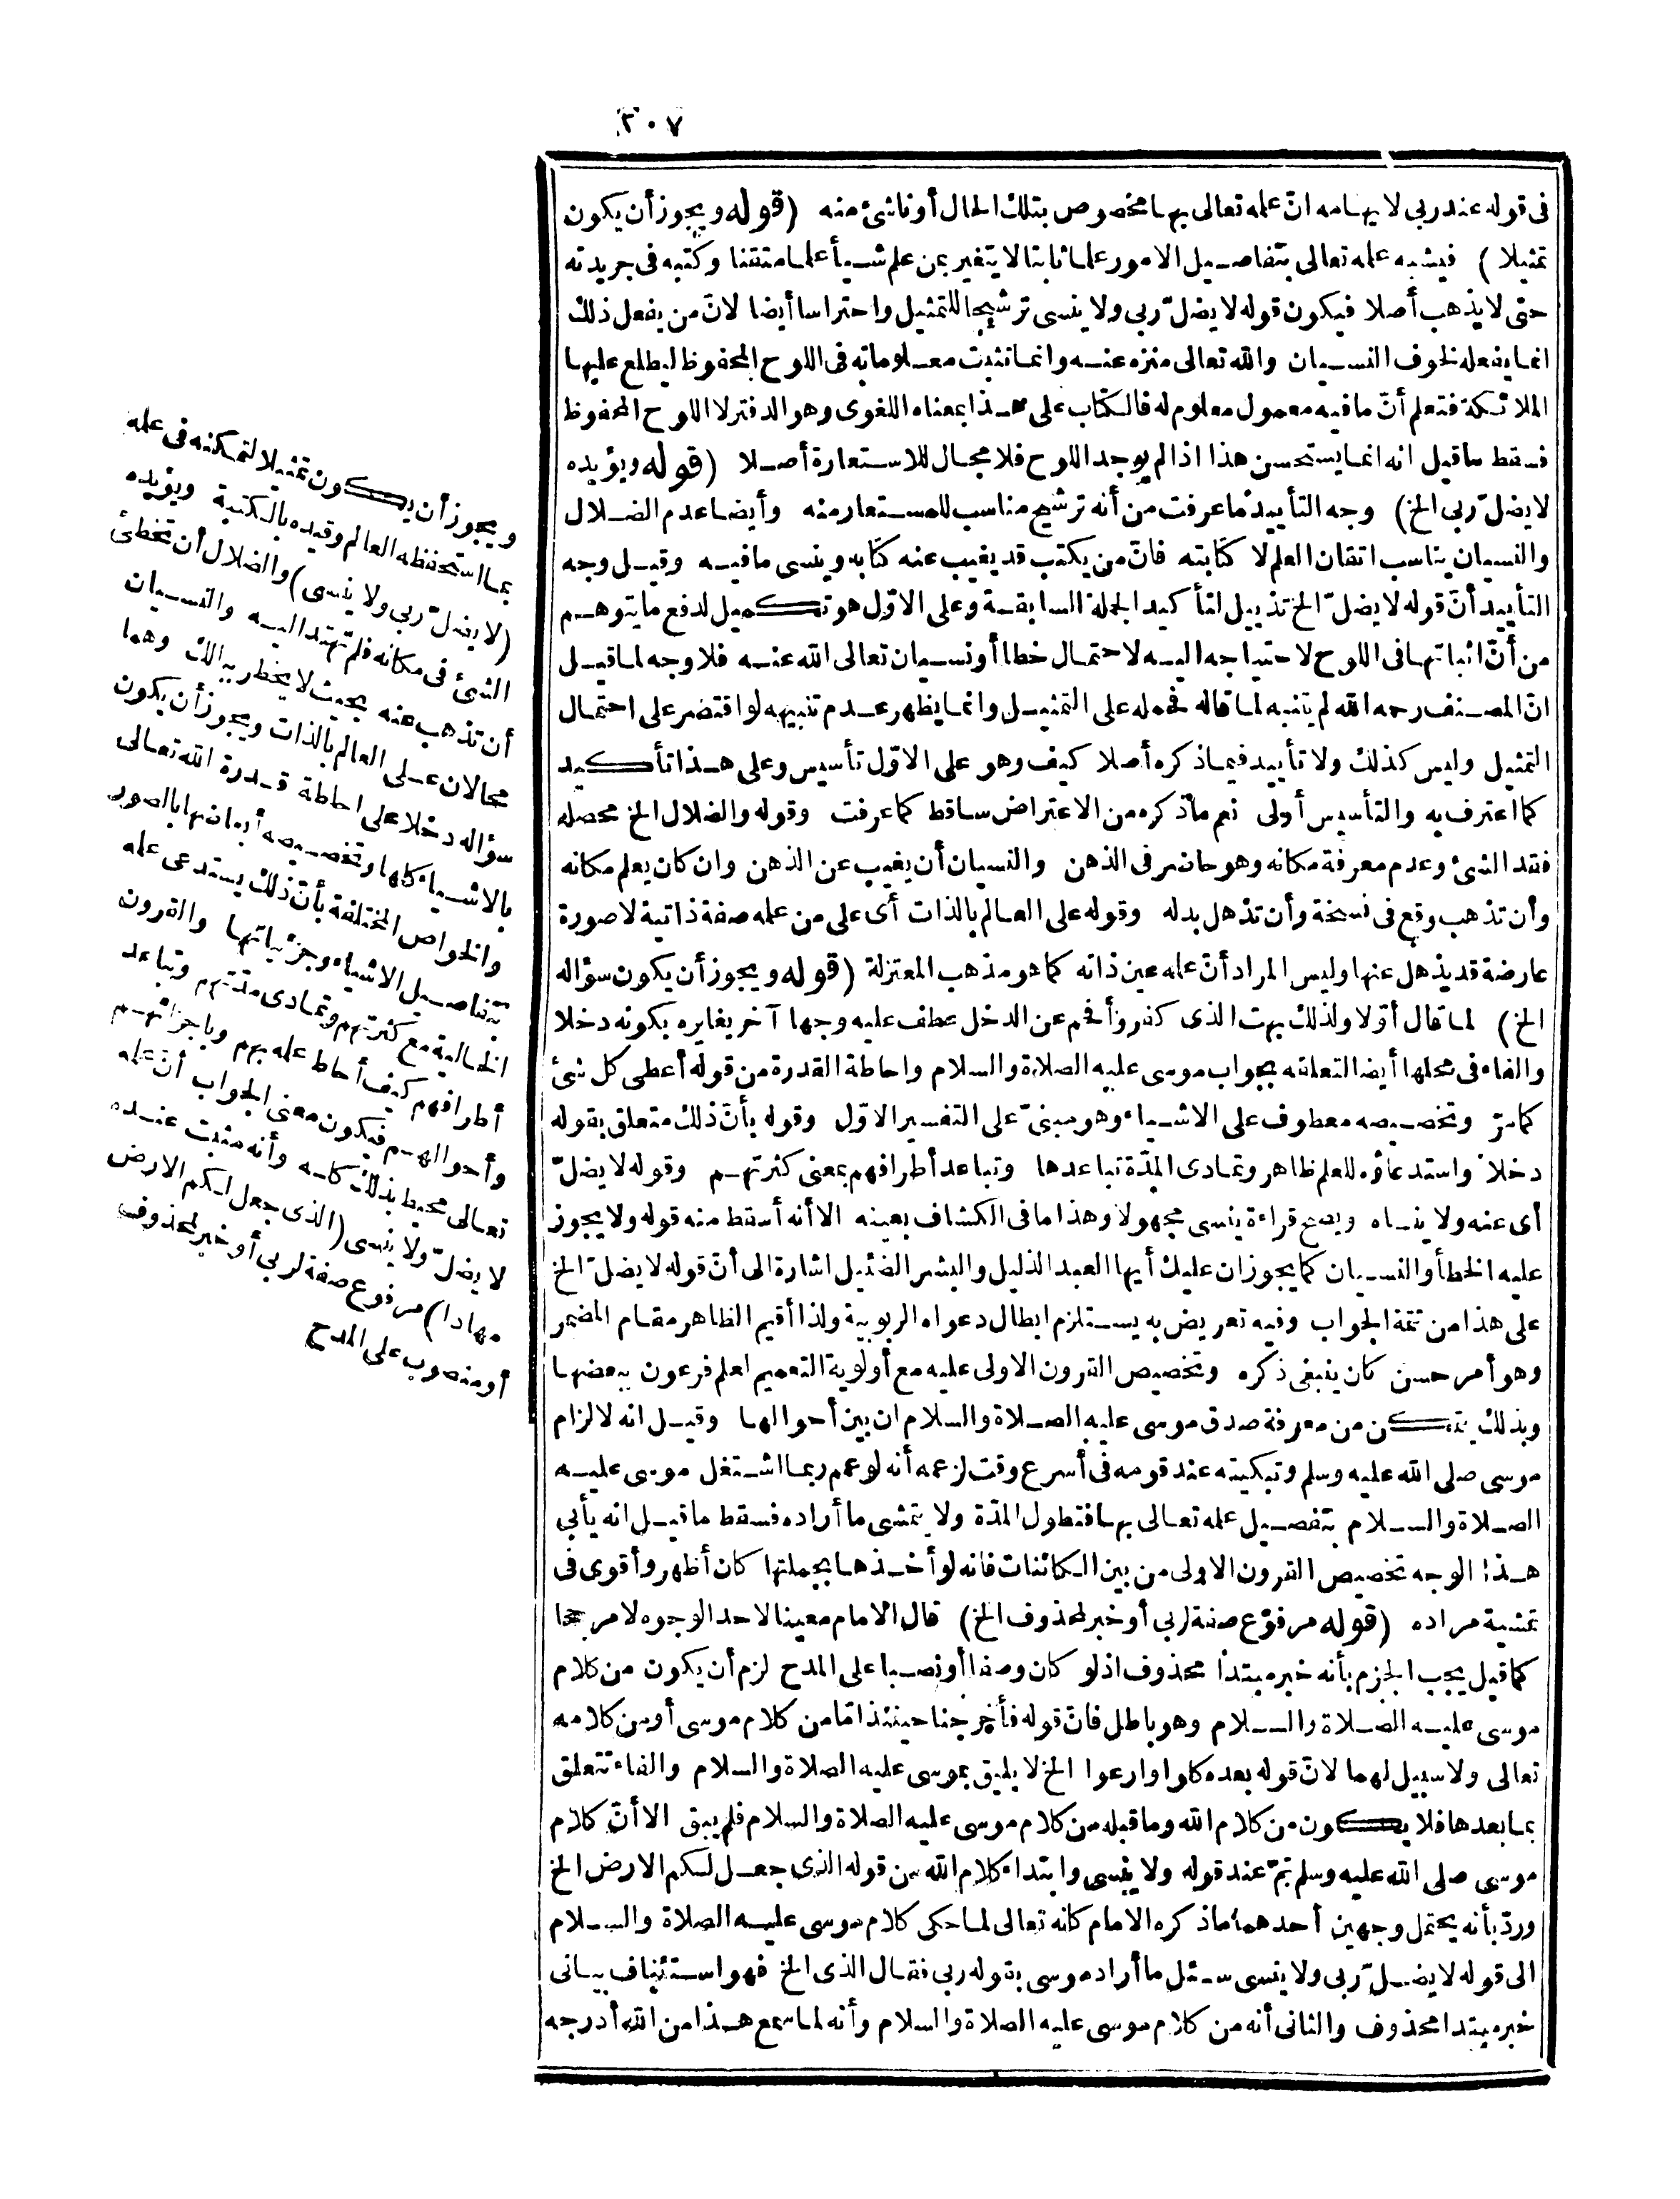 ٢٠٧
فى قوله عند ربى لايهامه انّ علمه تعالى بها مخصوص بتلك الحال أو ناشئ منه (قوله ويجوز أن يكون
تمثيلا) فيشبه علمه تعالى بتفاصيل الامور علما ثابتا لا يتغير بمن علم شيأ علما متقنا وكتبه فى جريدته
حتى لا يذهب أصلا فيكون قوله لا يضلّ ربى ولا ينسى ترشيحا للتمثيل واحتراسا أيضا لانّ من يفعل ذلك
انما يفعله لخوف النسيان والله تعالى منزه عنه وانما تثبت معلوماته فى اللوح المحفوظ ليطلع عليها
الملائكة فتعلم أنّ ما فيه معمول معلوم له فالكتاب على هذا بمعناه اللغوى وهو الدفتر لا اللوح المحفوظ
فسقط ما قيل انه انما يستحسن هذا اذا لم يوجد اللوح فلا مجال للاستعارة أصلا (قوله ويؤيده
لا يضلّ ربى الخ) وجه التأييد ما عرفت من أنه ترشيح مناسب للمستعار منه وأيضا عدم الضلال
والنسيان يناسب اتقان العلم لا كتابته فانّ من يكتب قد يغيب عنه كتابه وينسى ما فيه وقيل وجه
التأييد أنّ قوله لا يضلّ الخ تذييل لتأكيد الجملة السابقة وعلى الاوّل هو تكميل لدفع ما يتوهم
من أنّ اثباتها فى اللوح لاحتياجه اليه لاحتمال خطا أو نسيان تعالى الله عنه فلا وجه لما قيل
انّ المصنف رحمه الله لم يتنبه لما قاله فحمله على التمثيل وانما يظهر عدم تنبيهه لو اقتصر على احتمال
التمثيل وليس كذلك ولا تأييد فيما ذكره أصلا كيف وهو على الاوّل تأسيس وعلى هذا تأكيد
كما اعترف به والتأسيس أولى نعم ما ذكره من الاعتراض ساقط كما عرفت وقوله والضلال الخ محصله
فقد الشئ وعدم معرفة مكانه وهو حاضر فى الذهن والنسيان أن يغيب عن الذهن وان كان يعلم مكانه
وأن تذهب وقع فى نسخة وأن تذهل بدله وقوله على العالم بالذات أى على من علمه صفة ذاتية لا صورة
عارضة قد يذهل عنها وليس المراد أنّ علمه عين ذاته كما هو مذهب المعتزلة (قوله ويجوز أن يكون سؤاله
الخ) لما قال أوّلا ولذلك بهت الذى كفر وأفحم عن الدخل عطف عليه وجها آخر يغايره بكونه دخلا
والفاء فى محلها أيضا لتعلقه بجواب موسى عليه الصلاة والسلام واحاطة القدرة من قوله أعطى كل شئ
كما مرّ وتخصيصه معطوف على الاشياء وهو مبنىّ على التفسير الاوّل وقوله بأنّ ذلك متعلق بقوله
دخلا واستدعاؤه للعلم ظاهر وتمادى المدّة تباعدها وتباعد أطرافهم بمعنى كثرتهم وقوله لا يضلّ
أى عنه ولا ينساه ويصح قراءة ينسى مجهولا وهذا ما فى الكشاف بعينه الا أنه أسقط منه قوله ولا يجوز
عليه الخطأ والنسيان كما يجوزان عليك أيها العبد الذليل والبشر الضئيل اشارة الى أنّ قوله لا يضلّ الخ
على هذا من تتمة الجواب وفيه تعريض به يستلزم ابطال دعواه الربوبية ولذا أقيم الظاهر مقام المضمر
وهو أمر حسن كان ينبغى ذكره وتخصيص القرون الاولى عليه مع أولوية التعميم لعلم فرعون ببعضها
وبذلك يتمكن من معرفة صدق موسى عليه الصلاة والسلام ان بين أحوالها وقيل انه لالزام
موسى صلى الله عليه وسلم وتبكيته عند قومه فى أسرع وقت لزعمه أنه لو عمم ربما اشتغل موسى عليه
الصلاة والسلام بتفصيل علمه تعالى بها فتطول المدّة ولا يتمشى ما أراده فسقط ما قيل انه يأبى
هذا الوجه تخصيص القرون الاولى من بين الكائنات فانه لو أخذها بجملتها كان أظهر وأقوى فى
تمشية مراده (قوله مرفوع صفة لربى أو خبر لمحذوف الخ) قال الامام معينا لاحد الوجوه لا مرجحا
كما قيل يجب الجزم بأنه خبر مبتدا محذوف اذ لو كان وصفا أو نصبا على المدح لزم أن يكون من كلام
موسى عليه الصلاة والسلام وهو باطل فانّ قوله فأخرجنا حينئذ اما من كلام موسى أو من كلامه
تعالى ولا سبيل لهما لانّ قوله بعده كلوا وارعوا الخ لا يليق بموسى عليه الصلاة والسلام والفاء تتعلق
بما بعدها فلا يكون من كلام الله وما قبله من كلام موسى عليه الصلاة والسلام فلم يبق الا أنّ كلام
موسى صلى الله عليه وسلم تمّ عند قوله ولا ينسى وابتداء كلام الله من قوله الذى جعل لكم الارض الخ
وردّ بأنه يحتمل وجهين أحدهما ما ذكره الامام كأنه تعالى لما حكى كلام موسى عليه الصلاة والسلام
الى قوله لا يضلّ ربى ولا ينسى سئل ما أراد موسى بقوله ربى فقال الذى الخ فهو استئناف بيانى
خبر مبتدا محذوف والثانى أنه من كلام موسى عليه الصلاة والسلام وأنه لما سمع هذا من الله أدرجه
ويجوز أن يكون تمثيلا لتمكنه فى علمه
بما استحفظه العالم وقيده بالكتبة ويؤيده
(لا يضلّ ربى ولا ينسى) والضلال أن تخطئ
الشئ فى مكانه فلم تهتد اليه والنسيان
أن تذهب عنه بحيث لا يخطر ببالك وهما
محالان على العالم بالذات ويجوز أن يكون
سؤاله دخلا على احاطة قدرة الله تعالى
بالاشياء كلها وتخصيصه أبعاضها بالصور
والخواص المختلفة بأنّ ذلك يستدعى علمه
بتفاصيل الاشياء وجزئياتها والقرون
الخالية مع كثرتهم وتمادى مدّتهم وتباعد
أطرافهم كيف أحاط علمه بهم وباجزائهم
وأحوالهم فيكون معنى الجواب أنّ علمه
تعالى محيط بذلك كله وأنه مثبت عنده
لا يضلّ ولا ينسى (الذى جعل لكم الارض
مهادا) مرفوع صفة لربى أو خبر لمحذوف
أو منصوب على المدح